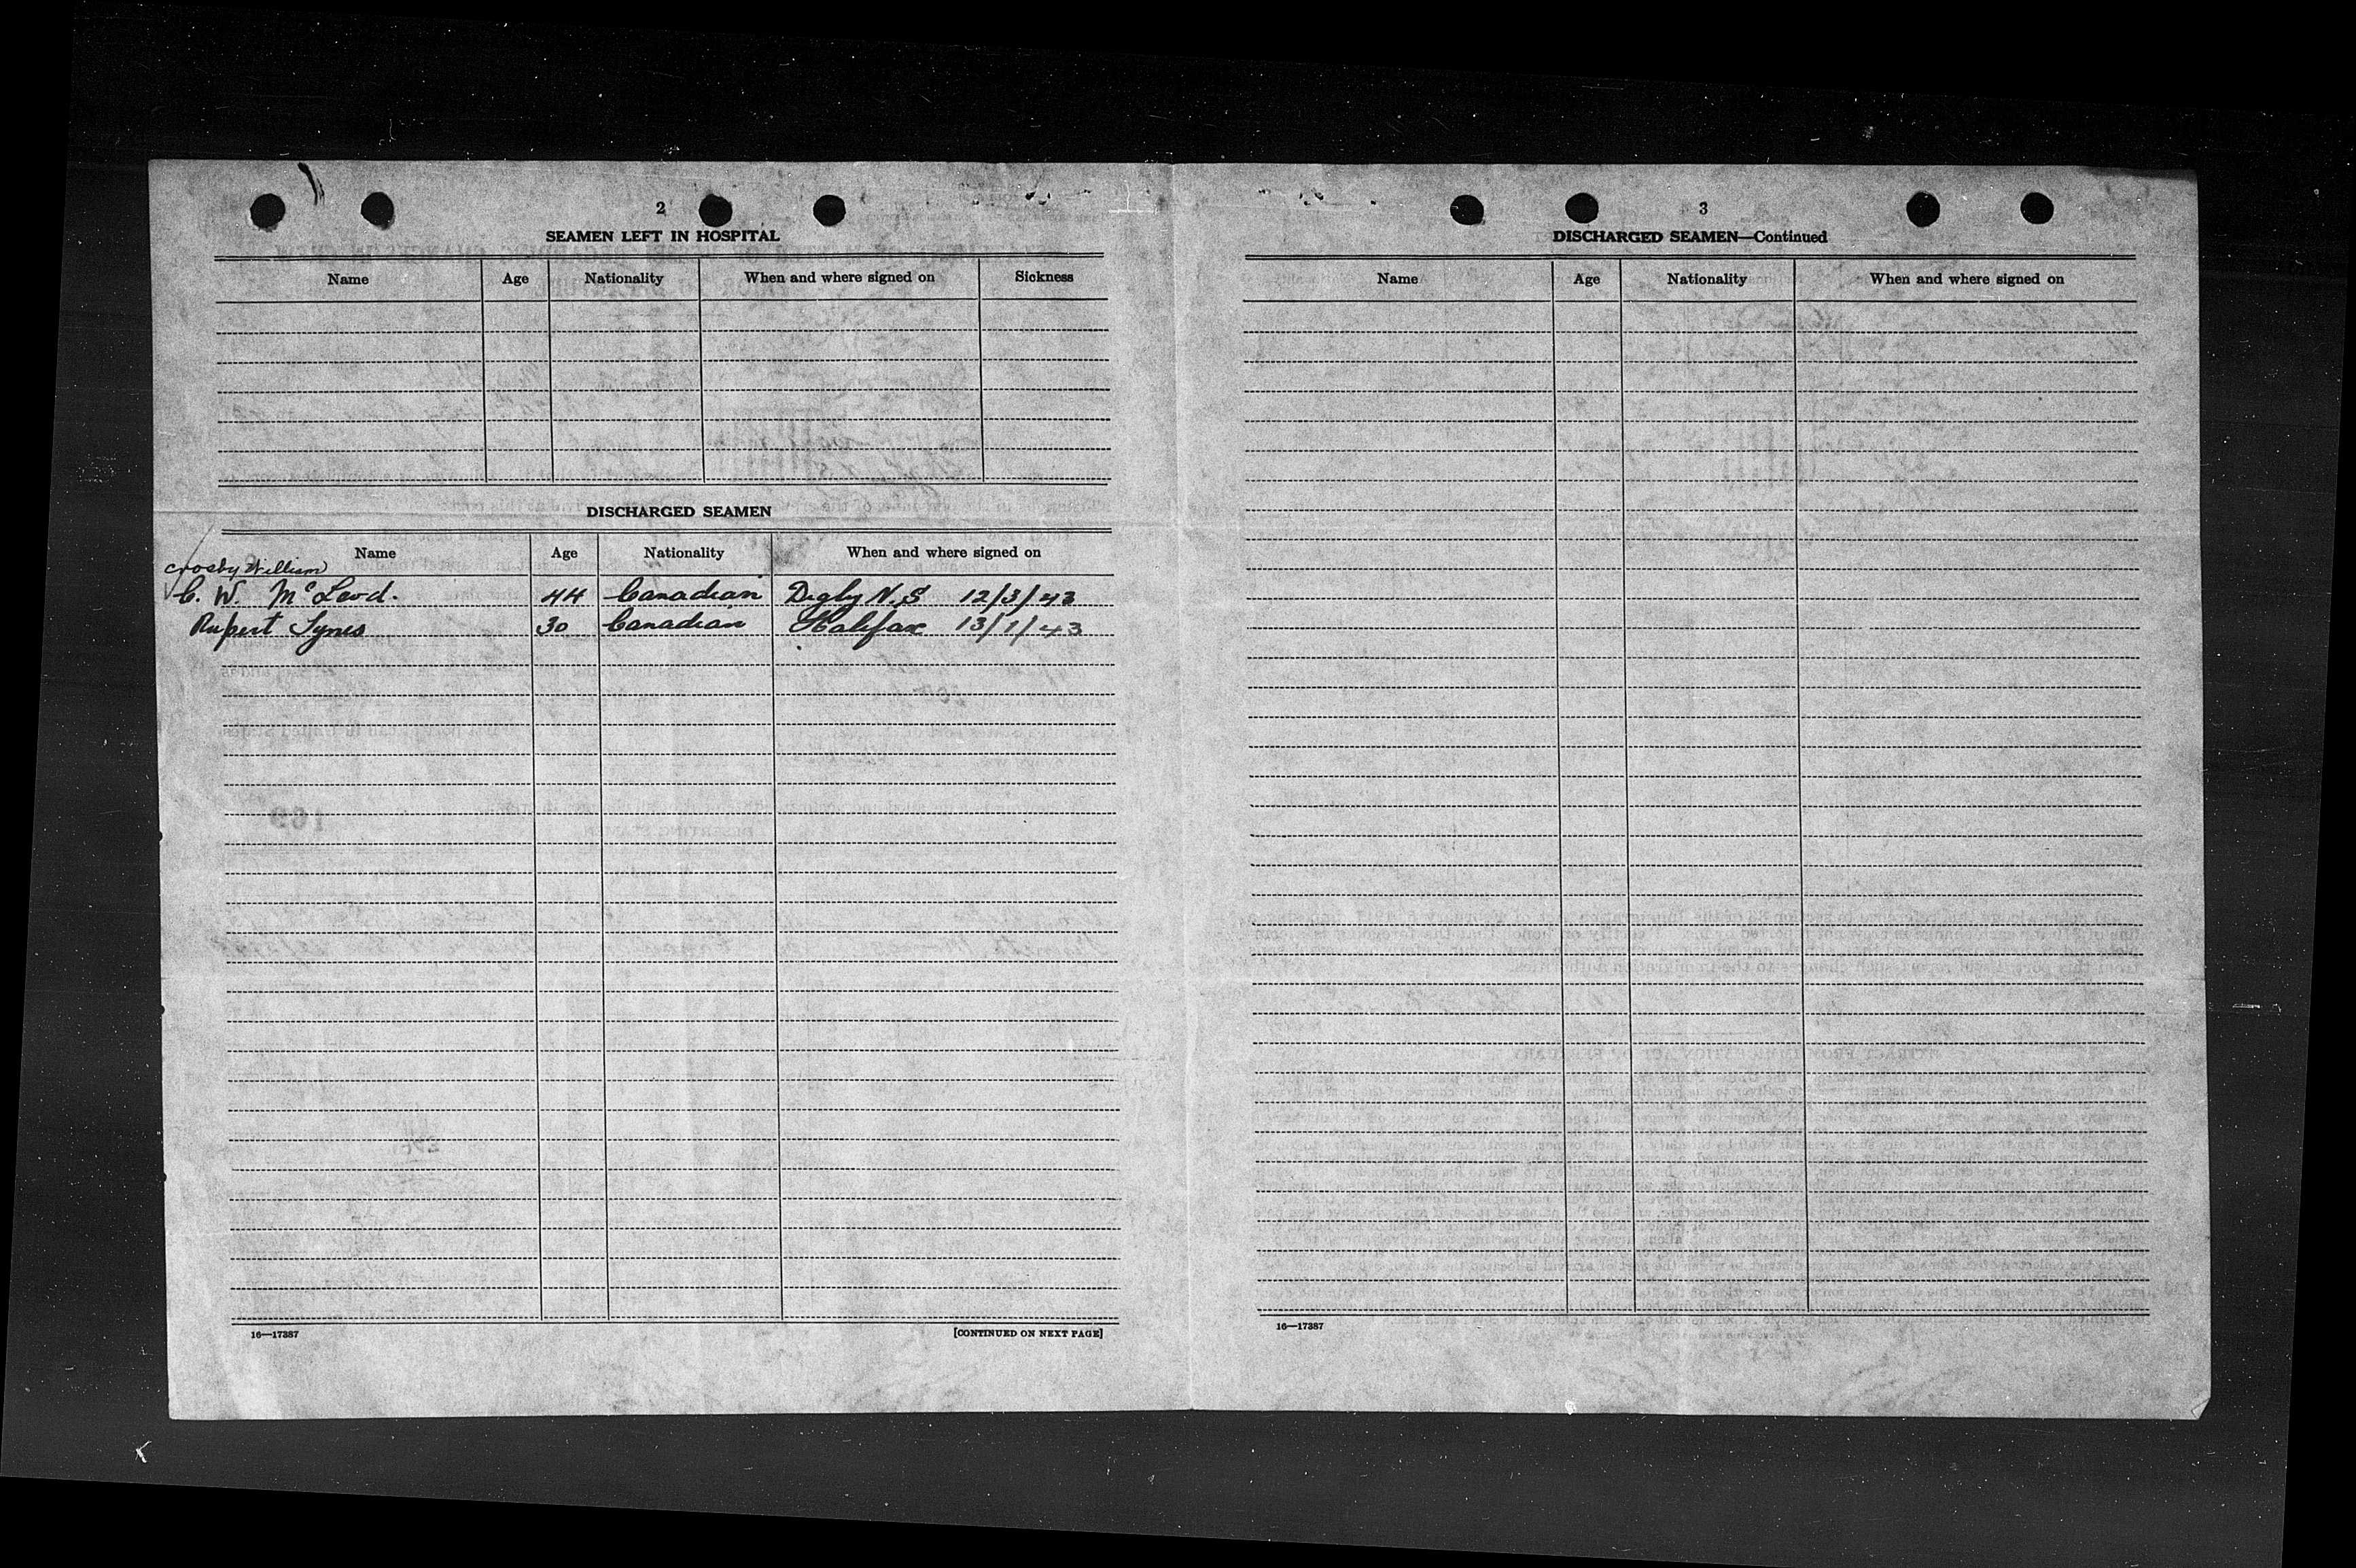 2
SEAMEN LEFT IN HOSPITAL
Name Age Nationality When and where signed on Sickness
DISCHARGED SEAMEN
Name Age Nationality When and where signed on
Crosby William
C. W. McLeod. 44 Canadian Digby N.S 12/3/43
Rupert Synes 30 Canadian Halifax 13/1/43
16—17387 [CONTINUED ON NEXT PAGE]
3
DISCHARGED SEAMEN—Continued
Name Age Nationality When and where signed on
16—17387